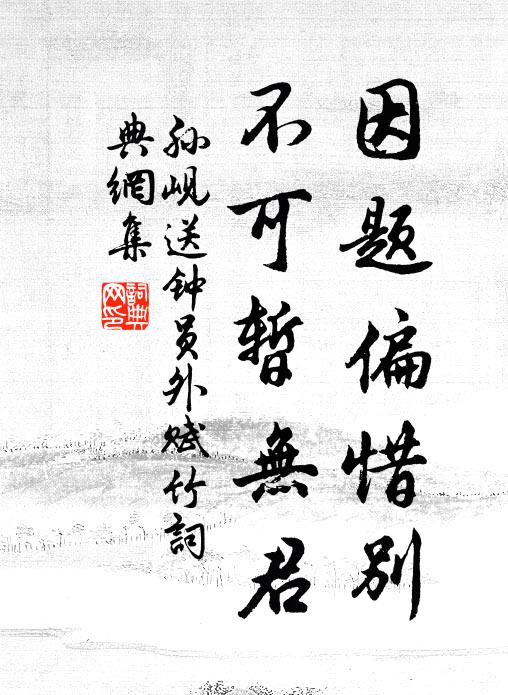 因题偏惜别
不可暂無君
孙岘送钟员外赋竹詞
典網集
詞典
网印